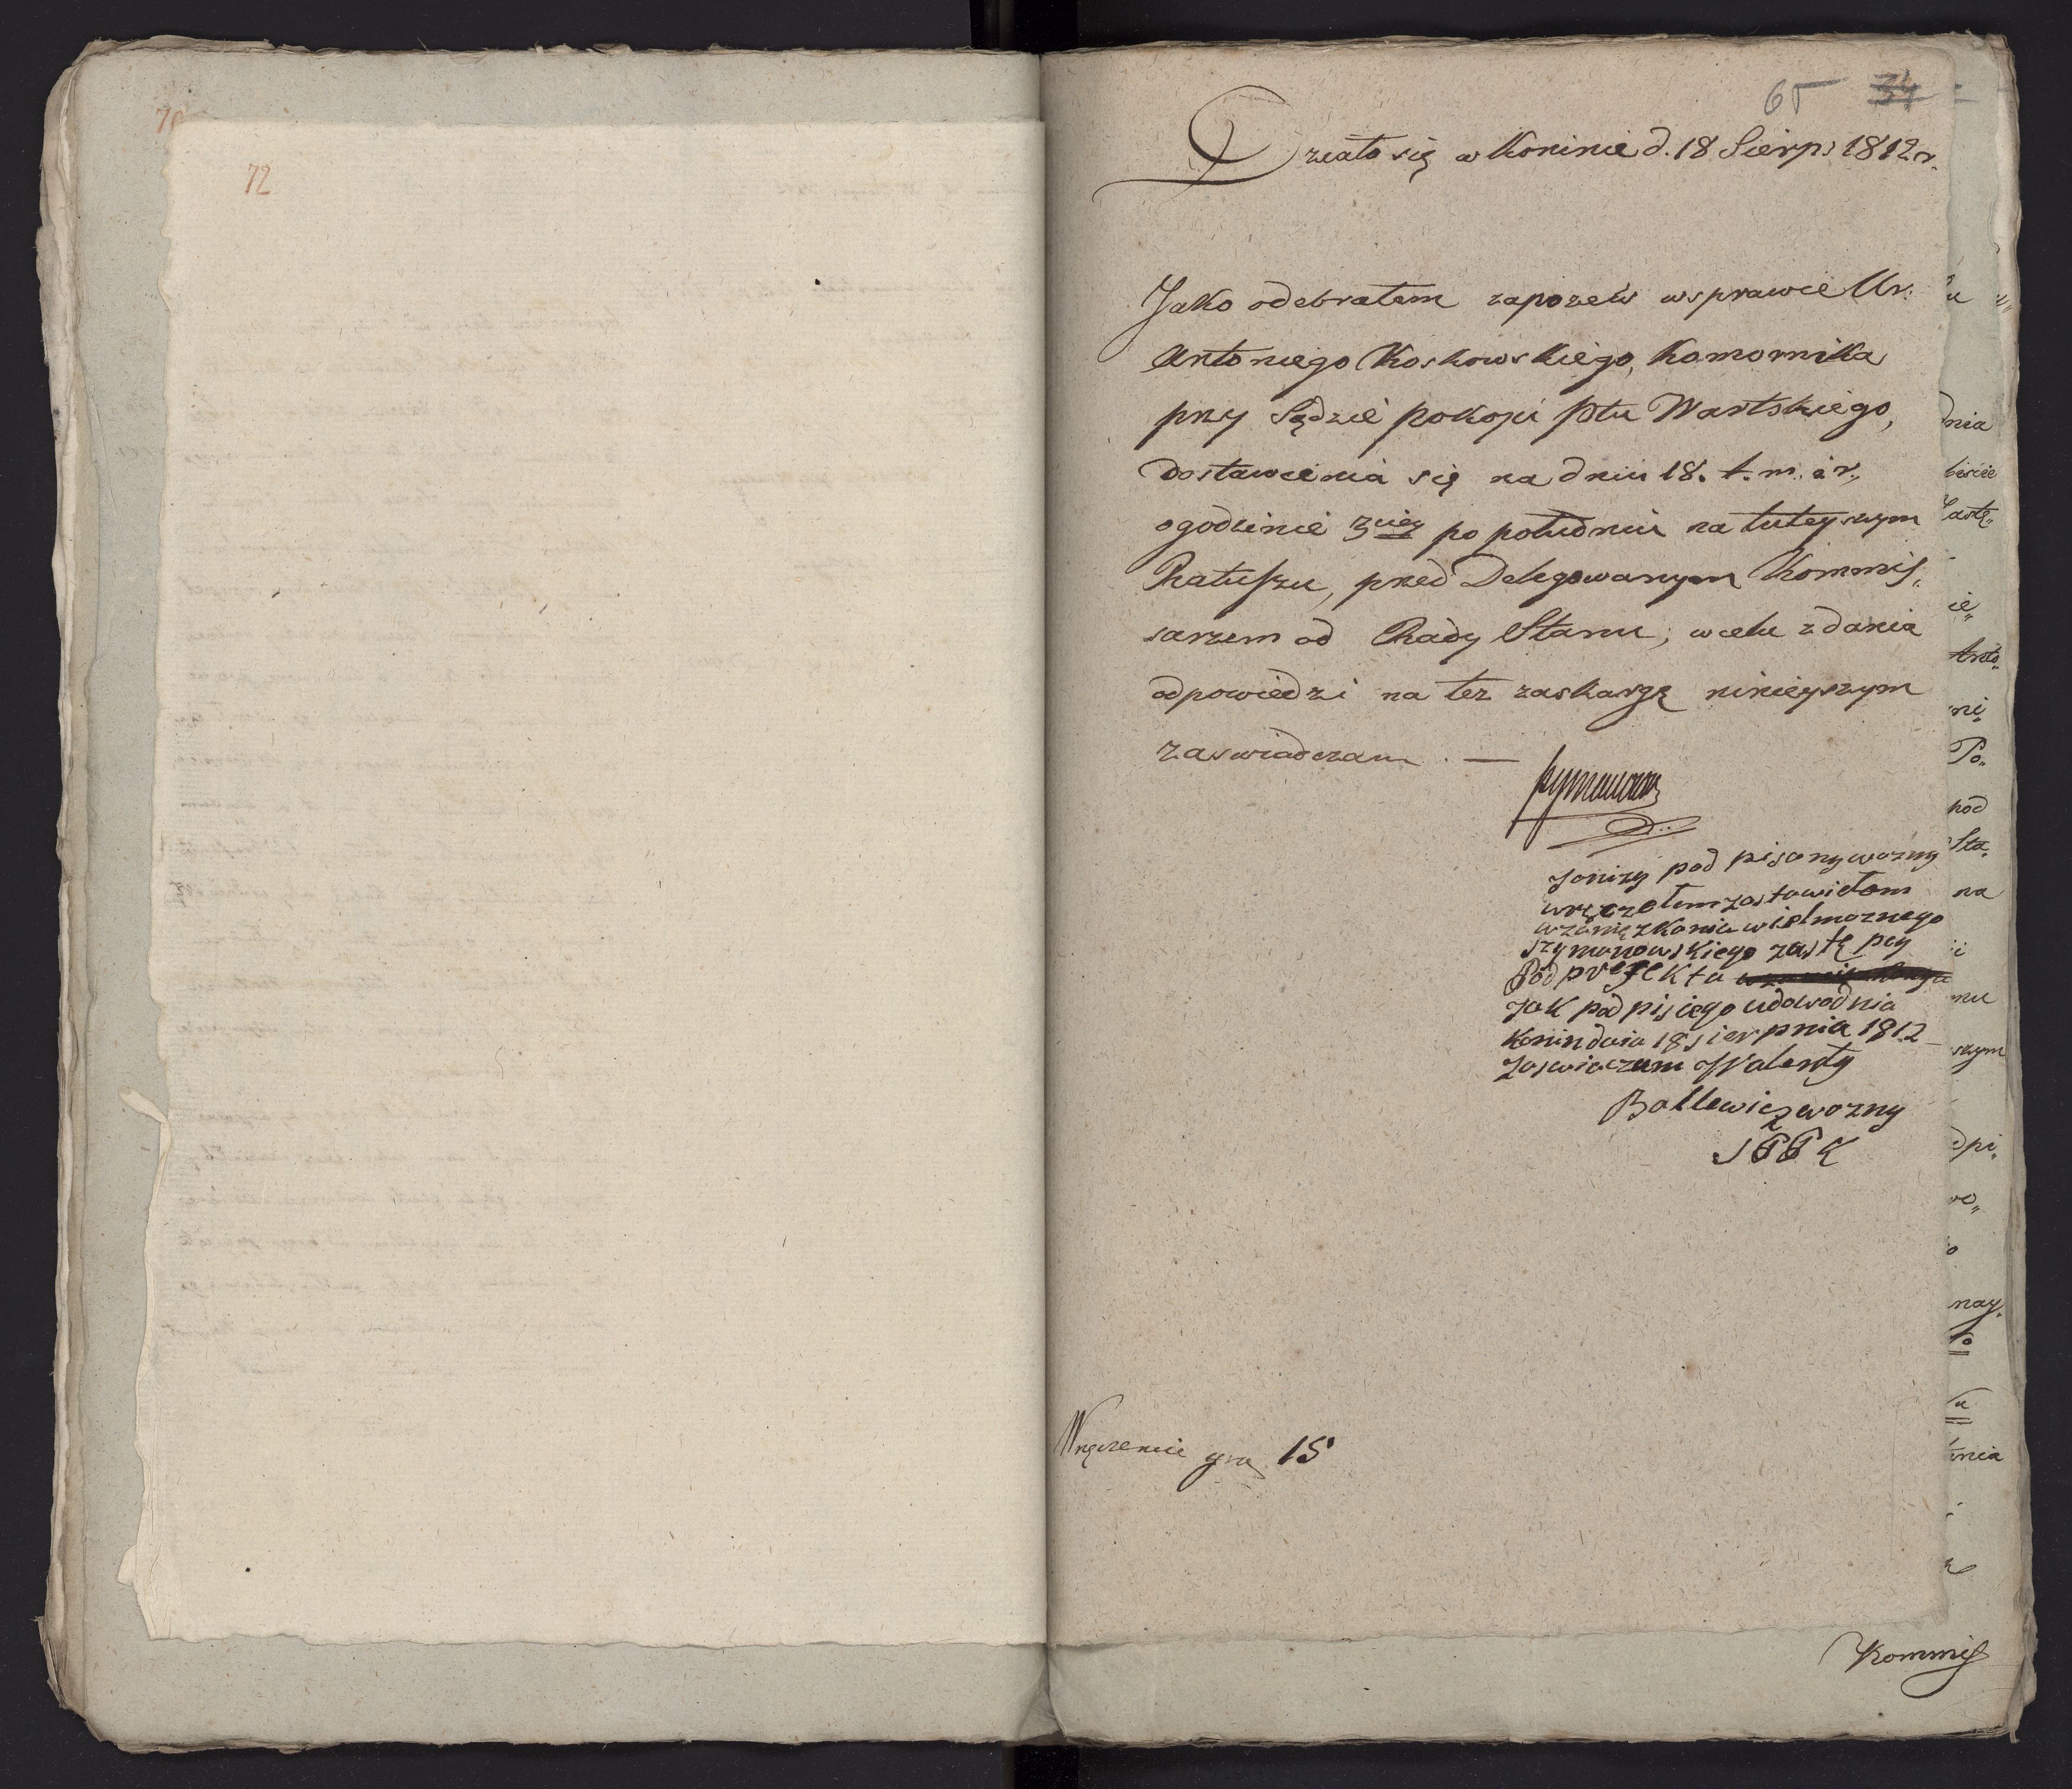 72
65 34
Działo się w Koninie d. 18 Sierp: 1812 r.
Jako odebrałem zapozew w sprawie Ur:
Antoniego Koskowskiego, Komornika
przy Sądzie pokoju Ptu Wartskiego,
dostawienia się na dniu 18. t. m. i r.,
o godzinie 3ciey po południu na tuteyszym
Ratuszu, przed Delegowanym Kommis„
sarzem od Rady Stanu, w celu zdania
odpowiedzi na tez zaskargę ninieyszym
zaswiadczam. —
Szymanowski
Ja niży pod pisany wozny
wręczełem zostawiełem
w zamięzkaniu wielmoznego
Szymanowskiego zastępcy
Pod prefekta
Jak podpis jego udowodnia
Konin dnia 18 sierpnia 1812
Zaswiaczam Walenty
Ballewicz wozny
S P P K
Wręczenie gro 15
Kommiss